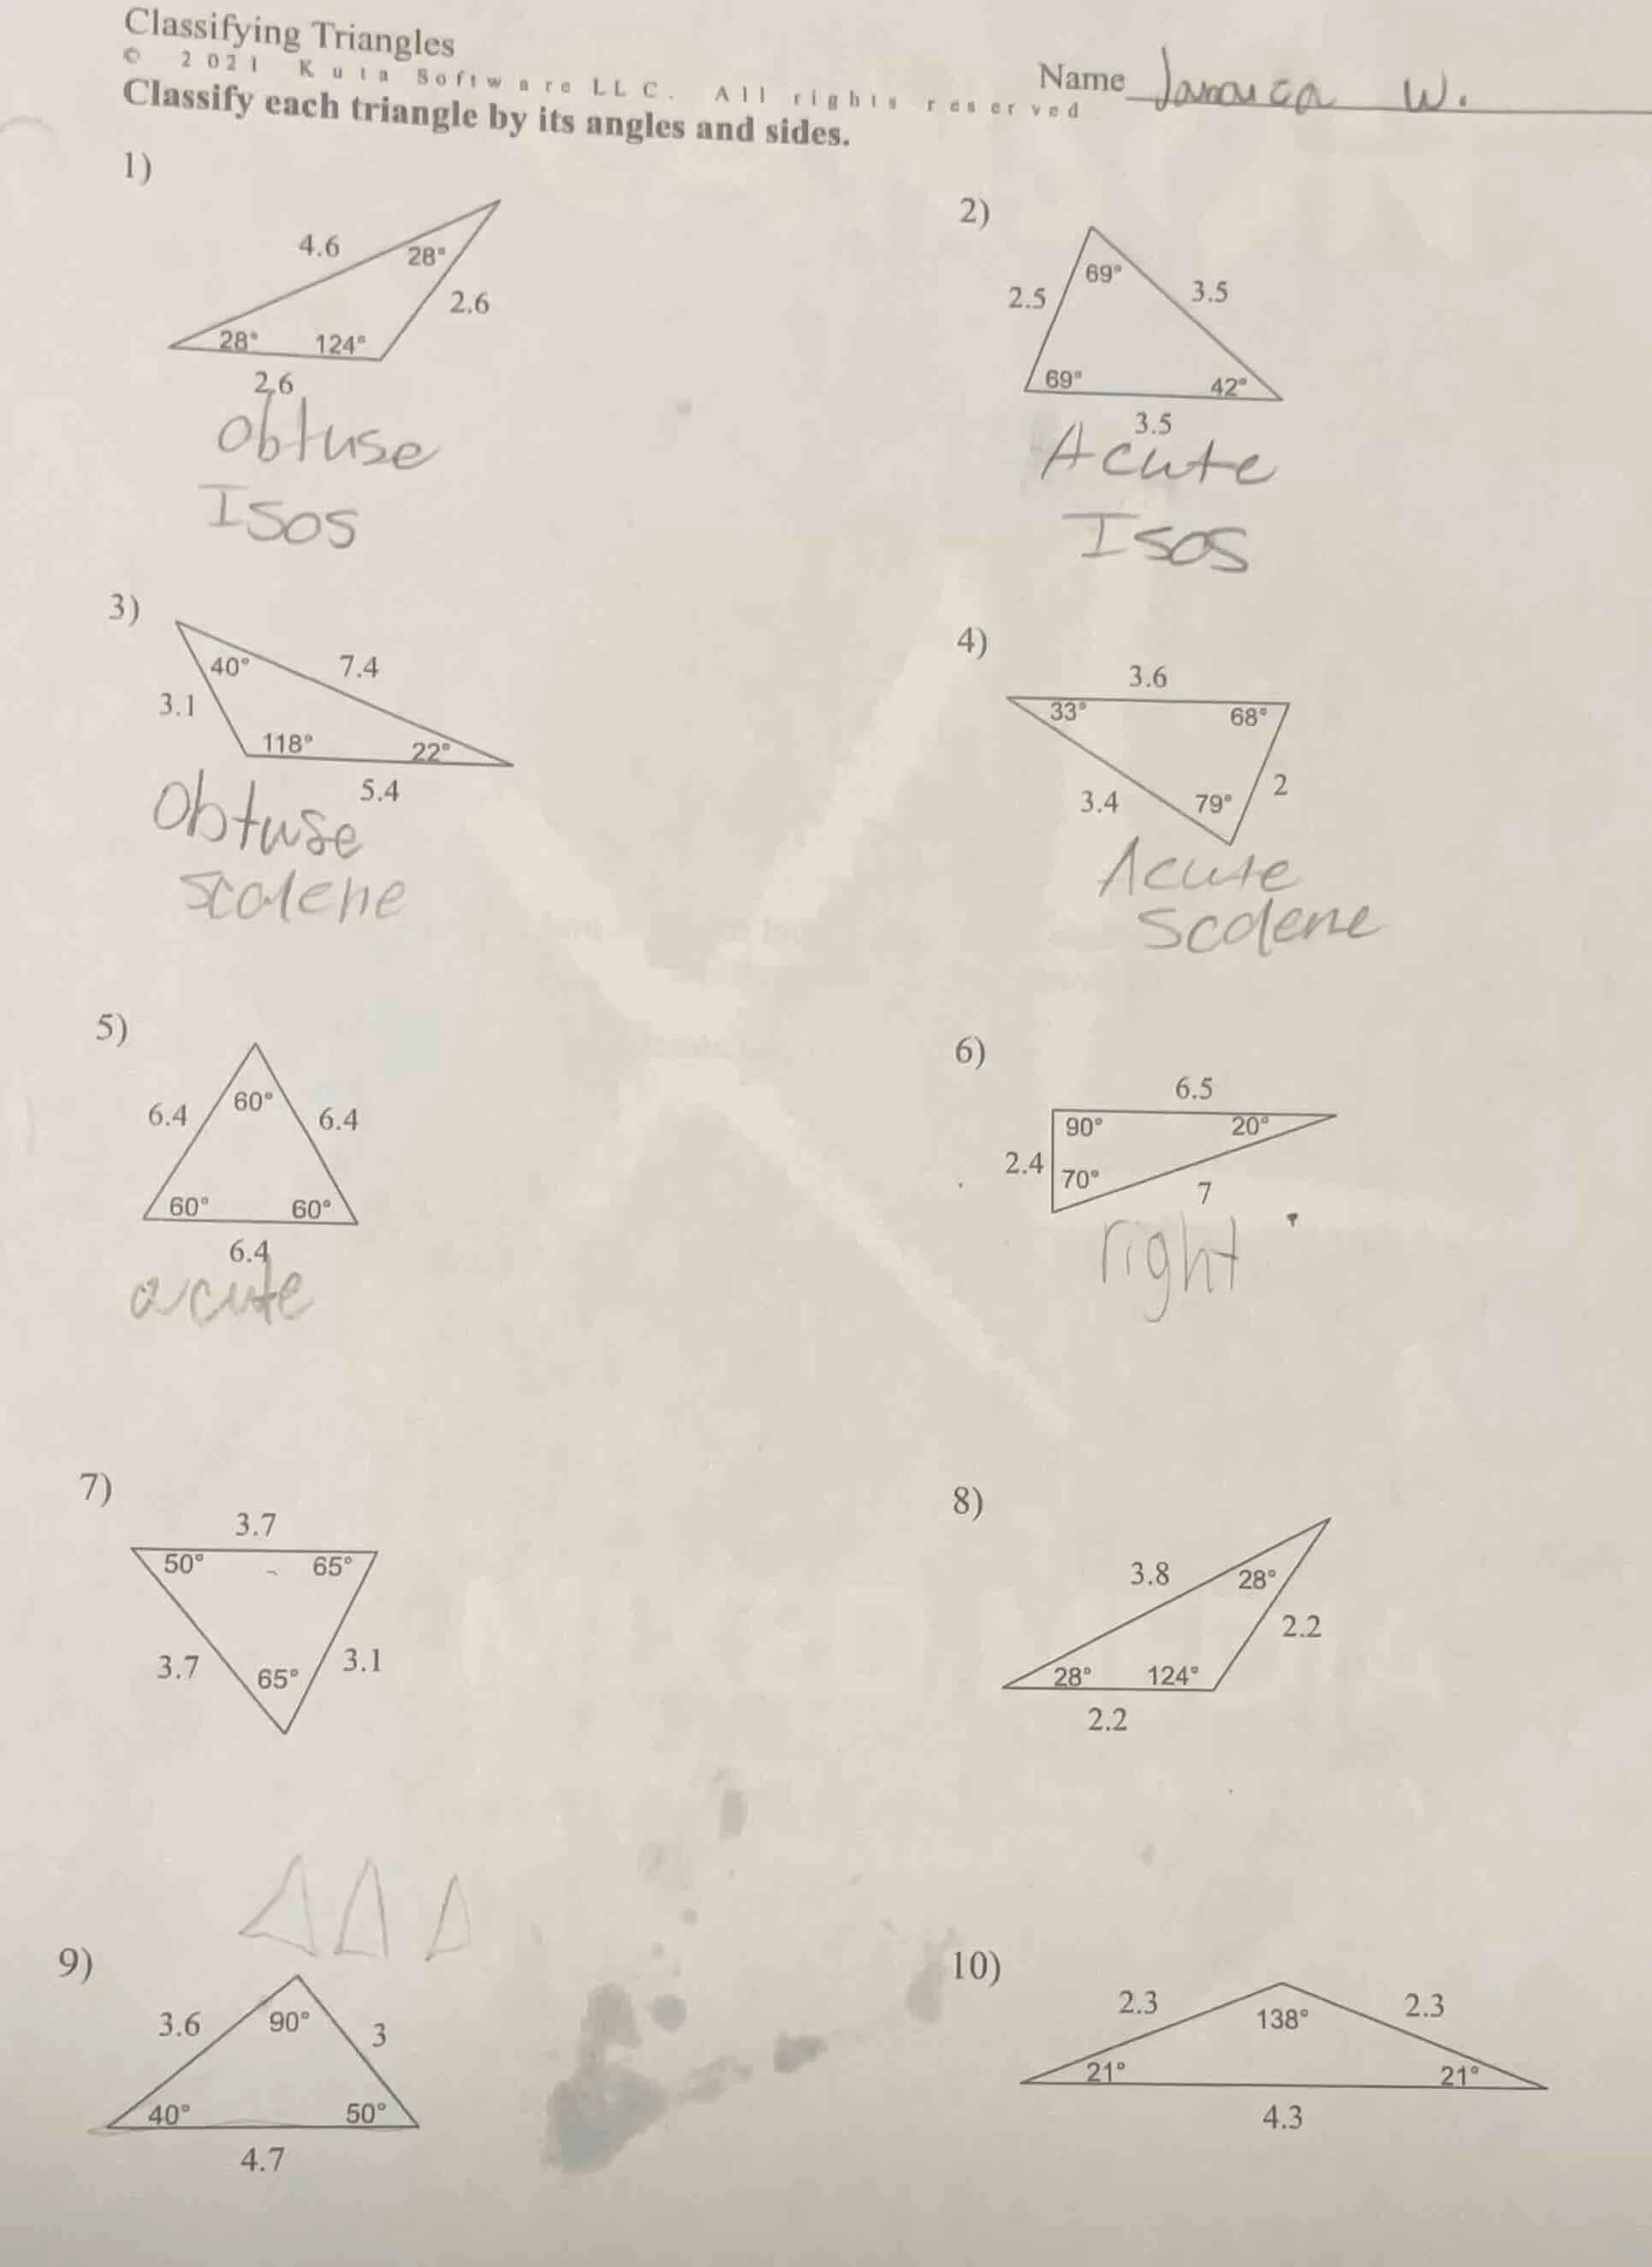 Classifying Triangles
© 2021 Kuta Software LLC. All rights reserved.
Name Jamaica W.
Classify each triangle by its angles and sides.
1)
4.6
28°
2.6
28° 124°
2.6
obtuse
Isos
2)
69°
2.5
3.5
69° 42°
3.5
Acute
Isos
3)
40° 7.4
3.1
118° 22°
5.4
Obtuse
scalene
4)
3.6
33° 68°
2
3.4 79°
Acute
Scalene
5)
60°
6.4 6.4
60° 60°
6.4
acute
6)
6.5
90° 20°
2.4
70°
7
right
7)
3.7
50° 65°
3.7 65° 3.1
8)
3.8 28°
2.2
28° 124°
2.2
9)
3.6 90° 3
40° 50°
4.7
10)
2.3 138° 2.3
21° 21°
4.3